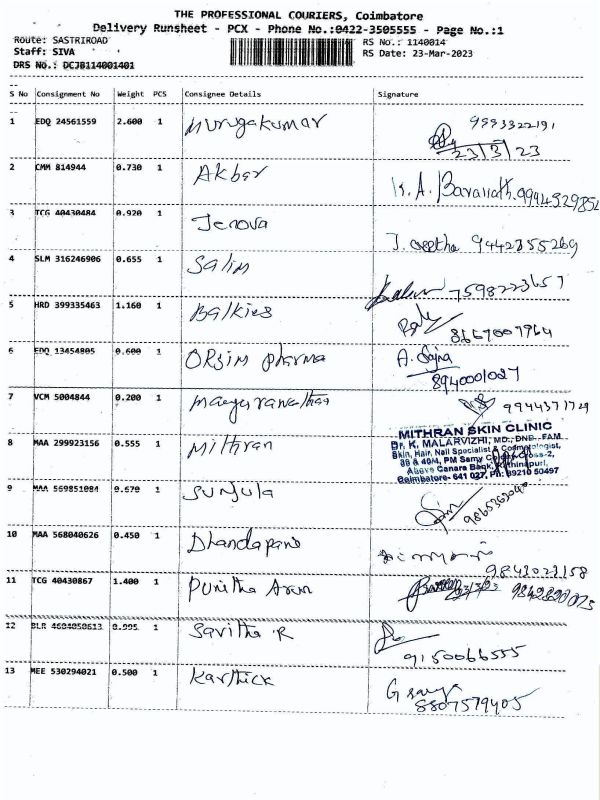 THE PROFESSIONAL COURIERS, Coimbatore
Delivery Runsheet - PCX - Phone No.:0422-3505555 - Page No.:1
Route: SASTRIROAD RS No.: 1140014
Staff: SIVA RS Date: 23-Mar-2023
DRS No.: DCJB114001401
S No Consignment No Weight PCS Consignee Details Signature
1 EDQ 24561559 2.600 1 Murugakumar
23/3/23
2 CMM 814944 0.730 1 Akbar
3 TCG 40430484 0.920 1 Jenova
J. Geetha 9442355269
4 SLM 316246906 0.655 1 Salim
7598223657
5 HRD 399335463 1.160 1 Balkies
8667007964
6 EDQ 13454805 0.600 1 ORSim pharma
8940001027
7 VCM 5004844 0.200 1
9944371729
MITHRAN SKIN CLINIC
Dr. K. MALARVIZHI, MD., DNB., FAM.
8 MAA 299923156 0.555 1 Mithran
Skin, Hair, Nail Specialist & Cosmetologist,
39 & 40/4, PM Samy Colony Cross-2,
Above Canara Bank, Rathinapuri,
Coimbatore- 641 027, Ph: 89210 50497
9 MAA 569851084 0.670 1 Sunjula
10 MAA 568040626 0.450 1 Dhandapani
9843023158
11 TCG 40430867 1.400 1 Punitha Arun
12 BLR 4604050613 0.995 1 Savitha R
9150066555
13 MEE 530294021 0.500 1 Karthick
8807579405